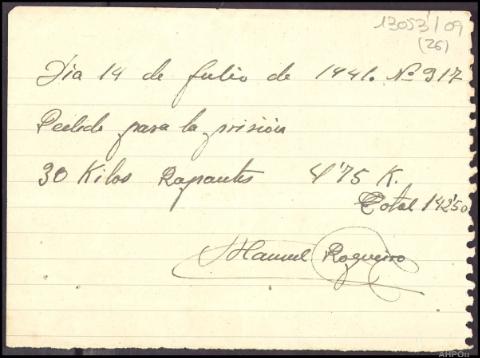 13053/09
(26)
Dia 14 de Julio de 1941. Nº 917
Pedido para la prisión
30 Kilos Rapantes 4'75 K.
Total 142'50
Manuel Rogueiro
AHPOu